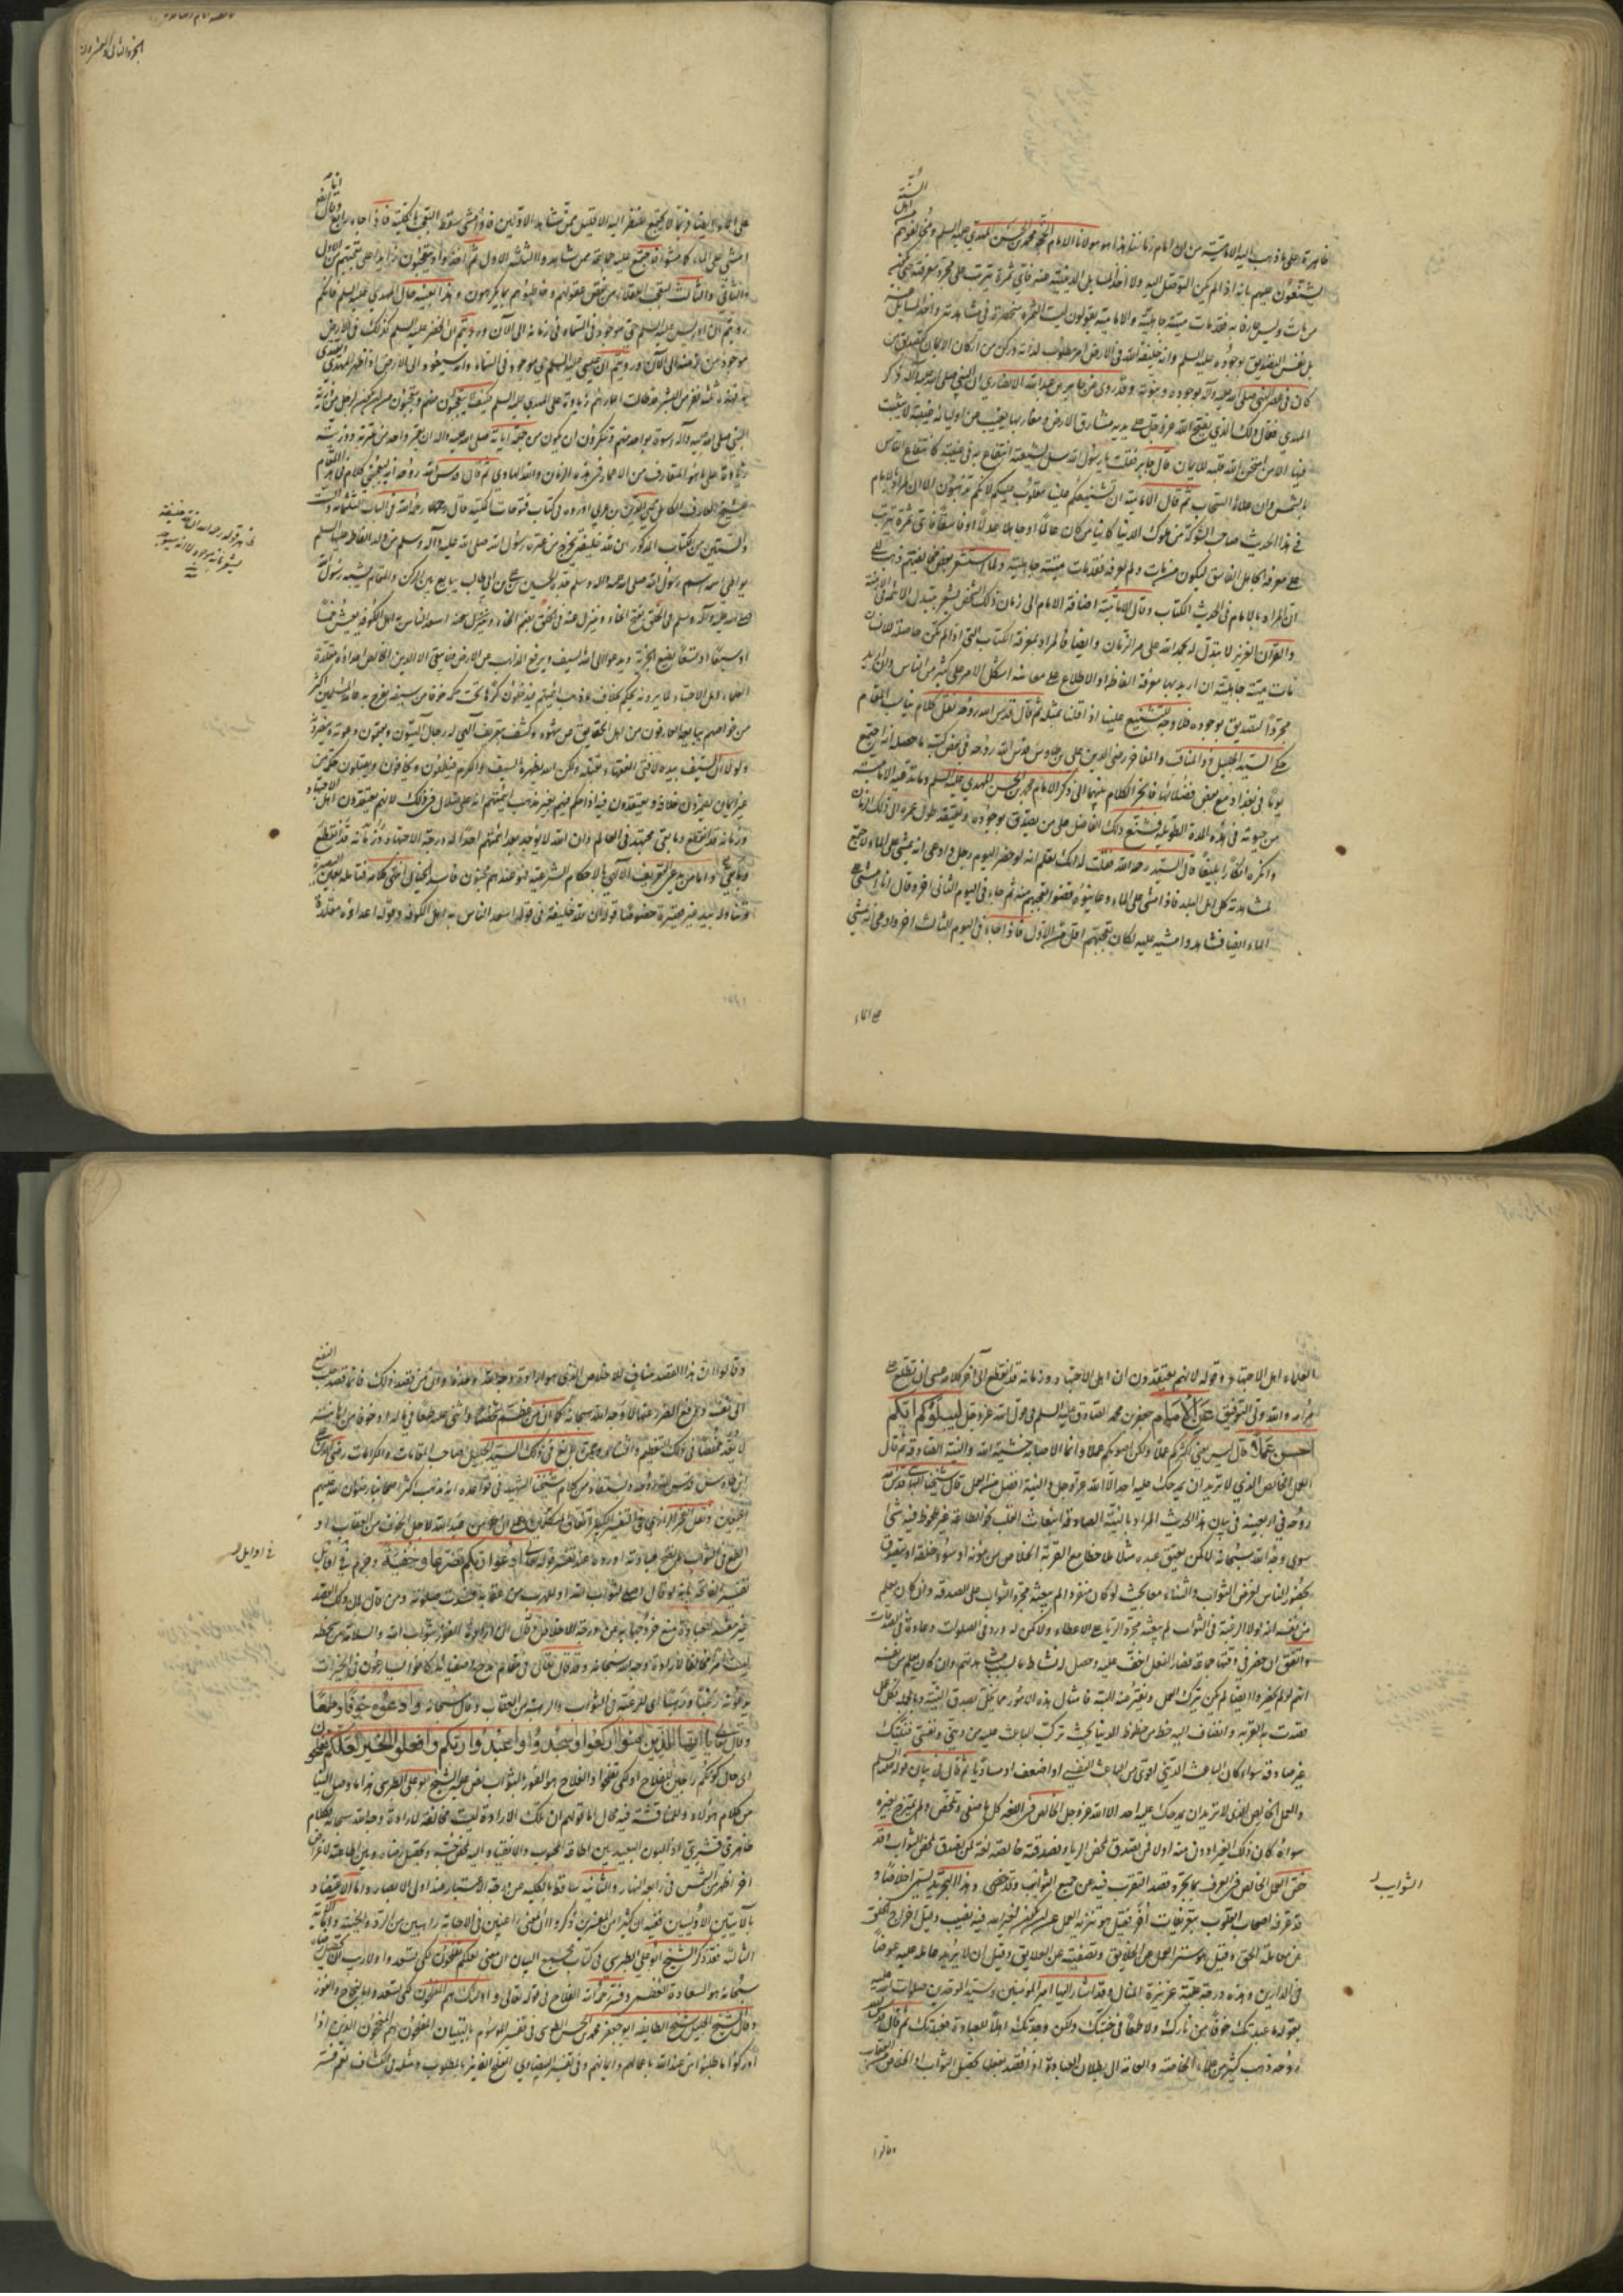 ظاهرة على ما ذهب اليه الامامية من ان امام زماننا هذا هو مولانا الامام الحجة محمد بن الحسن المهدي عليه السلام ومخالفوهم
يشنعون عليهم بانه اذا لم يمكن التوصل اليه ولا اخذ المسايل الدينية عنه فاي ثمرة تترتب على مجرد معرفته حتى يكون
من مات وليس عارفا به فقد مات ميتة جاهلية والامامية يقولون ليست الثمرة منحصرة في مشاهدته واخذ المسايل عنه
بل نفس التصديق بوجوده عليه السلام وانه خليفة الله في الارض امر مطلوب لذاته وركن من اركان الايمان كتصديق من
كان في عصر النبي صلى الله عليه وآله بوجوده ونبوته وقد روى عن جابر بن عبد الله الانصاري ان النبي صلى الله عليه وآله ذكر
المهدي فقال ذلك الذي يفتح الله عز وجل على يديه مشارق الارض ومغاربها يغيب عن اوليائه غيبة لا يثبت
فيها الا من امتحن الله قلبه للايمان قال جابر فقلت يا رسول الله هل لشيعته انتفاع به في غيبته
كانتفاع الناس
بالشمس وان علاها السحاب ثم قال الامامية ان تشنيعكم علينا مقلوب عليكم لانكم تذهبون الى ان المراد بالامام
في هذا الحديث صاحب الشوكة من ملوك الدنيا كائنا من كان عالما او جاهلا عدلا او فاسقا فاي ثمرة تترتب
على معرفة الجاهل الفاسق ليكون من مات ولم يعرفه فقد مات ميتة جاهلية ولما استشعر بعض مخالفيهم ذهب الى
ان المراد بالامام في الحديث الكتاب وقال الامامية اضافة الامام الى زمان ذلك الشخص يشعر بتبدل الائمة في الازمنة
والقرآن العزيز لا تبدل له بحمد الله على مر الزمان وايضا فالمراد بمعرفة الكتاب التي اذا لم تكن حاصلة للانسان
مات ميتة جاهلية ان اريد بها معرفة الفاظه او الاطلاع على معانيه اشكل الامر على كثير من الناس وان اريد
مجرد التصديق بوجوده فلا وجه للتشنيع علينا اذا قلنا بمثله ثم قال قدس الله روحه نقل كلام يناسب المقام
حكى السيد الجليل ذو المناقب والمفاخر رضي الدين علي بن طاوس قدس الله روحه في بعض كتبه ما حاصله انه اجتمع
يوما في بغداد مع بعض فضلائها فانجر الكلام بينهما الى ذكر الامام محمد بن الحسن المهدي عليه السلام وما تدعيه الامامية
من حيوته في هذه المدة الطويلة فشنع ذلك الفاضل على من يصدق بوجوده ويعتقد طول عمره الى ذلك الزمان
وانكره انكارا بليغا قال السيد رحمه الله فقلت له انك تعلم انه لو حضر اليوم رجل وادعى انه يمشي على الماء لاجتمع
لمشاهدته كل اهل البلد فاذا مشى على الماء وعاينوه قضوا تعجبهم منه ثم جاء في اليوم الثاني آخر وقال انا امشي على
الماء ايضا فشاهدوا مشيه عليه لكان تعجبهم اقل من الاول فاذا جاء في اليوم الثالث آخر وادعى انه يمشي
على الماء
الجزء الثاني والعشرون
على الماء ايضا فربما لا يجتمع للنظر اليه الا قليل ممن شاهد الاولين فاذا مشى سقط التعجب بالكلية فاذا جاء رابع
وقال انا ايضا
امشي على الماء كما مشوا فاجتمع عليه جماعة ممن شاهدوا الثلثة الاول ثم اخذوا يتعجبون زايدا على تعجبهم من الاول
والثاني والثالث لتعجب العقلاء من نقص عقولهم وخاطبوهم بما يكرهون وهذا بعينه حال المهدي عليه السلام فانكم
رويتم ان ادريس عليه السلام حي موجود في السماء من زمانه الى الآن ورويتم ان الخضر عليه السلام كذلك في الارض
موجود من زمنه الى الآن ورويتم ان عيسى عليه السلام حي موجود في السماء وانه سيعود الى الارض اذا ظهر المهدي
فهذه ثلثة نفر من البشر قد طالت اعمارهم زيادة على المهدي عليه السلام فكيف لا تتعجبون منهم وتتعجبون من ان يكون لرجل من ذرية
النبي صلى الله عليه وآله اسوة بواحد منهم وتنكرون ان يكون من جملة آياته صلى الله عليه وآله ان يعمر واحد من عترته وذريته
زيادة على ما هو المتعارف من الاعمار في هذا الزمان والله الهادي ثم قال قدس الله روحه انه ليعجبني كلام في هذا المقام
للشيخ العارف الكامل محيي الدين بن عربي اورده في كتاب فتوحات المكية قال رحمه الله في الباب الثلثمائة والست
والستين من الكتاب المذكور ان لله خليفة يخرج من عترة رسول الله صلى الله عليه وآله وسلم من ولد فاطمة عليها السلام
يواطي اسمه اسم رسول الله صلى الله عليه وآله وسلم جده الحسين بن علي بن ابي طالب يبايع بين الركن والمقام يشبه رسول الله
صلى الله عليه وآله وسلم في الخلق بفتح الخاء وينزل عنه في الخلق بضم الخاء اسعد الناس به اهل الكوفة يعيش خمسا
او سبعا او تسعا يضع الجزية ويدعو الى الله بالسيف ويرفع المذاهب عن الارض فلا يبقى الا الدين الخالص اعداؤه مقلدة
العلماء اهل الاجتهاد لما يرونه يحكم بخلاف ما ذهب اليه ائمتهم فيدخلون كرها تحت حكمه خوفا من سيفه يفرح به عامة المسلمين اكثر
من خواصهم يبايعه العارفون من اهل الحقايق عن شهود وكشف بتعريف الهي له رجال الهيون يقيمون دعوته وينصرونه
ولولا ان السيف بيده لافتى الفقهاء بقتله ولكن الله يظهره بالسيف والكرم فيطمعون ويخافون ويقبلون حكمه من
غير ايمان يضمرون خلافه ويعتقدون فيه اذا حكم فيهم بغير مذهب ائمتهم انه على ضلال في ذلك لانهم يعتقدون ان اهل الاجتهاد
وزمانه قد انقطع وما بقي مجتهد في العالم وان الله لا يوجد بعد ائمتهم احدا له درجة الاجتهاد
واما من يدعي التعريف الالهي بالاحكام الشرعية فهو عندهم مجنون فاسد الخيال انتهى كلامه فتامله بعين البصيرة
وتناوله بيد غير قصيرة خصوصا قوله ان لله خليفة وقوله اسعد الناس به اهل الكوفة وقوله اعداؤه مقلدة
العلماء اهل الاجتهاد وقوله لانهم يعتقدون ان اهل الاجتهاد وزمانه قد انقطع الى آخر كلامه عسى ان تطلع على
مرامه والله ولي التوفيق عن الامام جعفر بن محمد الصادق عليه السلام في قول الله عز وجل ليبلوكم ايكم
احسن عملا قال ليس يعني اكثركم عملا ولكن اصوبكم عملا وانما الاصابة خشية الله والنية الصادقة ثم قال
العمل الخالص الذي لا تريد ان يمدحك عليه احد الا الله عز وجل والنية افضل من العمل قال شيخنا البهائي قدس الله
روحه في اربعينه في بيان هذا الحديث المراد بالنية الصادقة انبعاث القلب نحو الطاعة غير ملحوظ فيه شيء
سوى وجه الله سبحانه لا كمن يعتق عبده مثلا ملاحظا مع القربة الخلاص من مؤنته او سوء خلقه او يتصدق
بحضور الناس لغرض الثواب والثناء معا بحيث لو كان منفردا لم يبعثه مجرد الثواب على الصدقة وان كان يعلم
من نفسه انه لولا الرغبة في الثواب لم يبعثه مجرد الرياء على الاعطاء ولا كمن له ورد في الصلوات وعادة في الصدقات
واتفق ان حضر في وقتها جماعة فصار الفعل اخف عليه وحصل له نشاط ما بسبب مشاهدتهم وان كان يعلم من نفسه
انهم لو لم يحضروا ايضا لم يكن يترك العمل ويفتر عنه البتة فامثال هذه الامور مما يخل بصدق النية وبالجملة فكل عمل
قصدت به القربة وانضاف اليه حظ من حظوظ الدنيا بحيث تركب الباعث عليه من ديني ونفسي فنيتك
غير صادقة سواء كان الباعث الديني اقوى من الباعث النفسي او اضعف او مساويا ثم قال في بيان قوله عليه السلام
والعمل الخالص الذي لا تريد ان يمدحك عليه احد الا الله عز وجل الخالص في اللغة كل ما صفى وتخلص ولم يمتزج بغيره
سواء كان ذلك الغير ادون منه اولا فمن تصدق لمحض الرياء فصدقته خالصة لغة كمن تصدق لمحض الثواب وقد
خص العمل الخالص في العرف بما تجرد قصد التقرب فيه عن جميع الشوايب وهذا التجريد يسمى اخلاصا
وقد عرفه اصحاب القلوب بتعريفات اخر فقيل هو تنزيه العمل عن ان يكون لغير الله فيه نصيب وقيل اخراج الخلق
عن معاملة الحق وقيل هو ستر العمل عن الخلايق وتصفيته عن العلايق وقيل ان لا يريد عامله عليه عوضا
في الدارين وهذه درجة علية عزيزة المنال وقد اشار اليها امير المؤمنين وسيد الموحدين صلوات الله عليه
بقوله ما عبدتك خوفا من نارك ولا طمعا في جنتك ولكن وجدتك اهلا للعبادة فعبدتك ثم قال قدس الله
روحه ذهب كثير من علماء الخاصة والعامة الى بطلان العبادة اذا قصد بفعلها تحصيل الثواب او الخلاص من العقاب
وقالوا
الثوايب
وقالوا ان هذا القصد مناف للاخلاص الذي هو ارادة وجه الله وحده وان من قصد ذلك فانما قصد جلب النفع
الى نفسه ودفع الضرر عنها لا وجه الله سبحانه كما ان من عظم شخصا واثنى عليه طمعا في ماله او خوفا من اهانته
لا يعد مخلصا في ذلك التعظيم والثناء وممن بالغ في ذلك السيد الجليل صاحب المقامات والكرامات رضي الدين علي
ابن طاوس قدس الله روحه ويستفاد من كلام شيخنا الشهيد في قواعده انه مذهب اكثر اصحابنا رضوان الله عليهم
ونقل الفخر الرازي في التفسير الكبير اتفاق المتكلمين على ان من عبد الله لاجل الخوف من العقاب او
الطمع في الثواب لم تصح عبادته اورده عند تفسير قوله تعالى ادعوا ربكم تضرعا وخفية وجزم في اوايل
تفسير الفاتحة بانه لو قال اصلي لثواب الله او للهرب من عقابه فسدت صلوته ومن قال بان ذلك القصد
غير مفسد للعبادة منع خروجها به عن درجة الاخلاص وقال ان ارادة الفوز بثواب الله والسلامة من سخطه
ليست امرا مخالفا لارادة وجه الله سبحانه وقد قال تعالى في مقام مدح اصفيائه كانوا يسارعون في الخيرات
ويدعوننا رغبا ورهبا اي للرغبة في الثواب والرهبة من العقاب وقال سبحانه وادعوه خوفا وطمعا
وقال تعالى يا ايها الذين امنوا اركعوا واسجدوا واعبدوا ربكم وافعلوا الخير لعلكم تفلحون
اي حال كونكم راجين للفلاح او لكي تفلحوا والفلاح هو الفوز بالثواب نص عليه الشيخ ابو علي الطبرسي هذا ما وصل الينا
من كلام هؤلاء وللمناقشة فيه مجال اما قولهم ان تلك الارادة ليست مخالفة لارادة وجه الله سبحانه فكلام
ظاهري قشري اذ البون البعيد بين اطاعة المحبوب والانقياد اليه لمحض حبه وتحصيل رضاه وبين اطاعته لاغراض
اخر اظهر من الشمس في رابعة النهار والثانية ساقطة بالكلية عن درجة الاعتبار عند اولي الابصار واما الاعتضاد
بالآيتين الاوليين ففيه ان كثيرا من المفسرين ذكروا ان المعنى راغبين في الاجابة راهبين من الرد والخيبة واما الآية
الثالثة فقد ذكر الشيخ ابو علي الطبرسي في كتاب مجمع البيان ان معنى لعلكم تفلحون لكي تسعدوا ولا ريب ان تحصيل رضاه
سبحانه هو السعادة العظمى وفسر رحمه الله الفلاح في قوله تعالى واولئك هم المفلحون والنجاح والفوز
وقال الشيخ الجليل شيخ الطايفة ابو جعفر محمد بن الحسن الطوسي في تفسيره الموسوم بالتبيان المفلحون هم المنجحون الذين
ادركوا ما طلبوا من عند الله باعمالهم وايمانهم وفي تفسير البيضاوي المفلح الفائز بالمطلوب ومثله في الكشاف نعم فسر
في اوايل